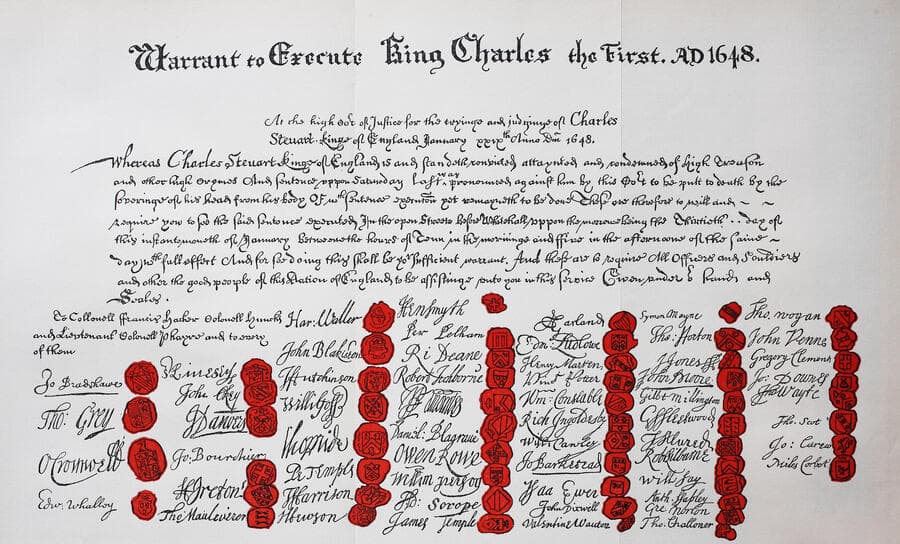 Warrant to Execute King Charles the First. AD 1648.
At the high Cort of Justice for the tryinge and judginge of Charles
Steuart Kinge of England January xxixth Anno Dni 1648.
Whereas Charles Steuart Kinge of England is and standeth convicted attaynted and condemned of High Treason
and other high Crymes And sentence uppon Saturday last was pronounced against him by this Cort to be putt to death by the
severinge of his head from his body Of wch sentence execucon yet remayneth to be done These are therefore to will and
require you to see the said sentence executed In the open Streete before Whitehall uppon the morrowe being the Thirtieth day of
this instante moneth of January betweene the houres of Tenn in the morninge and ffive in the afternoone of the same
day wth full effect And for soe doing this shall be yor sufficient warrant And these are to require All Officers and Souldiers
and other the good people of this Nation of England to be assistinge unto you in this service Given under o hands and
Seales.
To Collonell Francis Hacker Colonell Huncks
and Lieutenant Colonell Phayre and to every
of them
Jo Bradshawe
Tho: Grey
O Cromwell
Edw. Whalley
John Okey
J Danvers
Jo: Bourchier
H Ireton
Tho Mauleverer
Har: Waller
John Blakiston
J Hutchinson
Willi Goffe
P Temple
T Harrison
J Hewson
Hen Smyth
Per Pelham
Ri Deane
Robert Tichborne
Daniel Blagrave
Owen Rowe
Adr: Scrope
James Temple
A Garland
Edm: Ludlowe
Henry Marten
Wm: Constable
Rich Ingoldesby
Will: Cawley
Jo Barkestead
Isaa Ewer
John Dixwell
Valentine Wauton
Symon Mayne
Tho: Horton
J Jones
John Moore
Gilbt Millington
G Fleetwood
J Alured
Robt Lilburne
Will Say
Anth Stapley
Gre Norton
Tho: Challoner
Tho. Wogan
John Venn
Gregory Clement
Jo: Downes
Tho Wayte
Tho: Scot
Jo: Carew
Miles Corbet